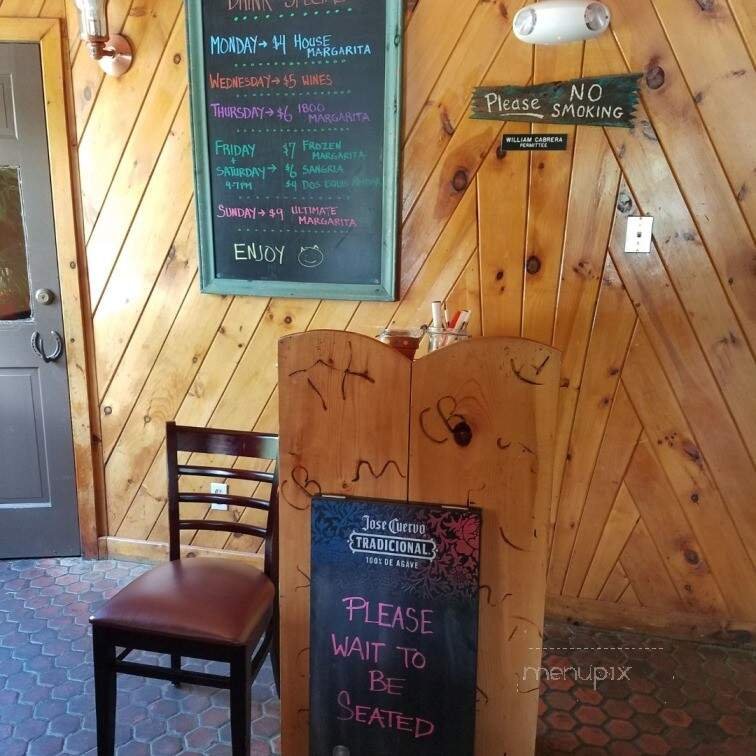 DRINK SPECIALS
MONDAY → $4 HOUSE
MARGARITA
WEDNESDAY → $5 WINES
THURSDAY → $6 1800
MARGARITA
FRIDAY $7 FROZEN
+ MARGARITA
SATURDAY → $6 SANGRIA
4-7PM $4 DOS EQUIS
SUNDAY → $9 ULTIMATE
MARGARITA
ENJOY
Please NO
SMOKING
WILLIAM CABRERA
PERMITTEE
CB
CB
Jose Cuervo
TRADICIONAL
100% DE AGAVE
PLEASE
WAIT TO
BE
SEATED
menupix